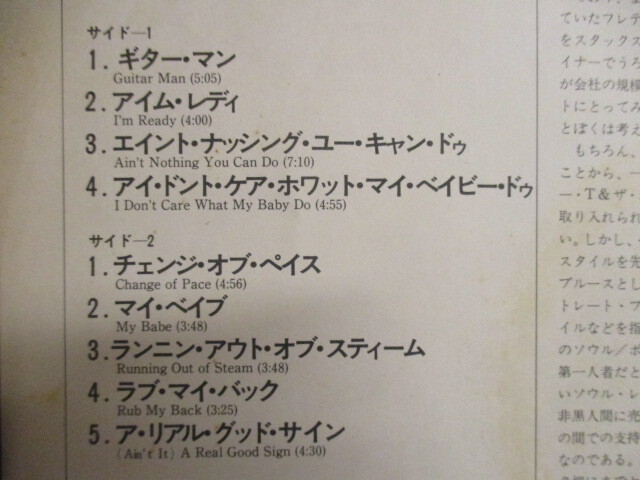 サイド—1
1. ギター・マン
Guitar Man (5:05)
2. アイム・レディ
I'm Ready (4:00)
3. エイント・ナッシング・ユー・キャン・ドゥ
Ain't Nothing You Can Do (7:10)
4. アイ・ドント・ケア・ホワット・マイ・ベイビー・ドゥ
I Don't Care What My Baby Do (4:55)
サイド—2
1. チェンジ・オブ・ペイス
Change of Pace (4:56)
2. マイ・ベイブ
My Babe (3:48)
3. ランニン・アウト・オブ・スティーム
Running Out of Steam (3:48)
4. ラブ・マイ・バック
Rub My Back (3:25)
5. ア・リアル・グッド・サイン
(Ain't It) A Real Good Sign (4:30)
ていたフレデ
をスタックス
イナーでうろ
が会社の規模
トにとってみ
とぼくは考え
もちろん、
ことから、一
ー・T&ザ・
取り入れられ
い。しかし、
スタイルを先
ブルースとし
トレート・ブ
イルなどを指
のソウル/ボ
第一人者だと
いソウル・レ
非黒人間に売
の間での支持
なのである。